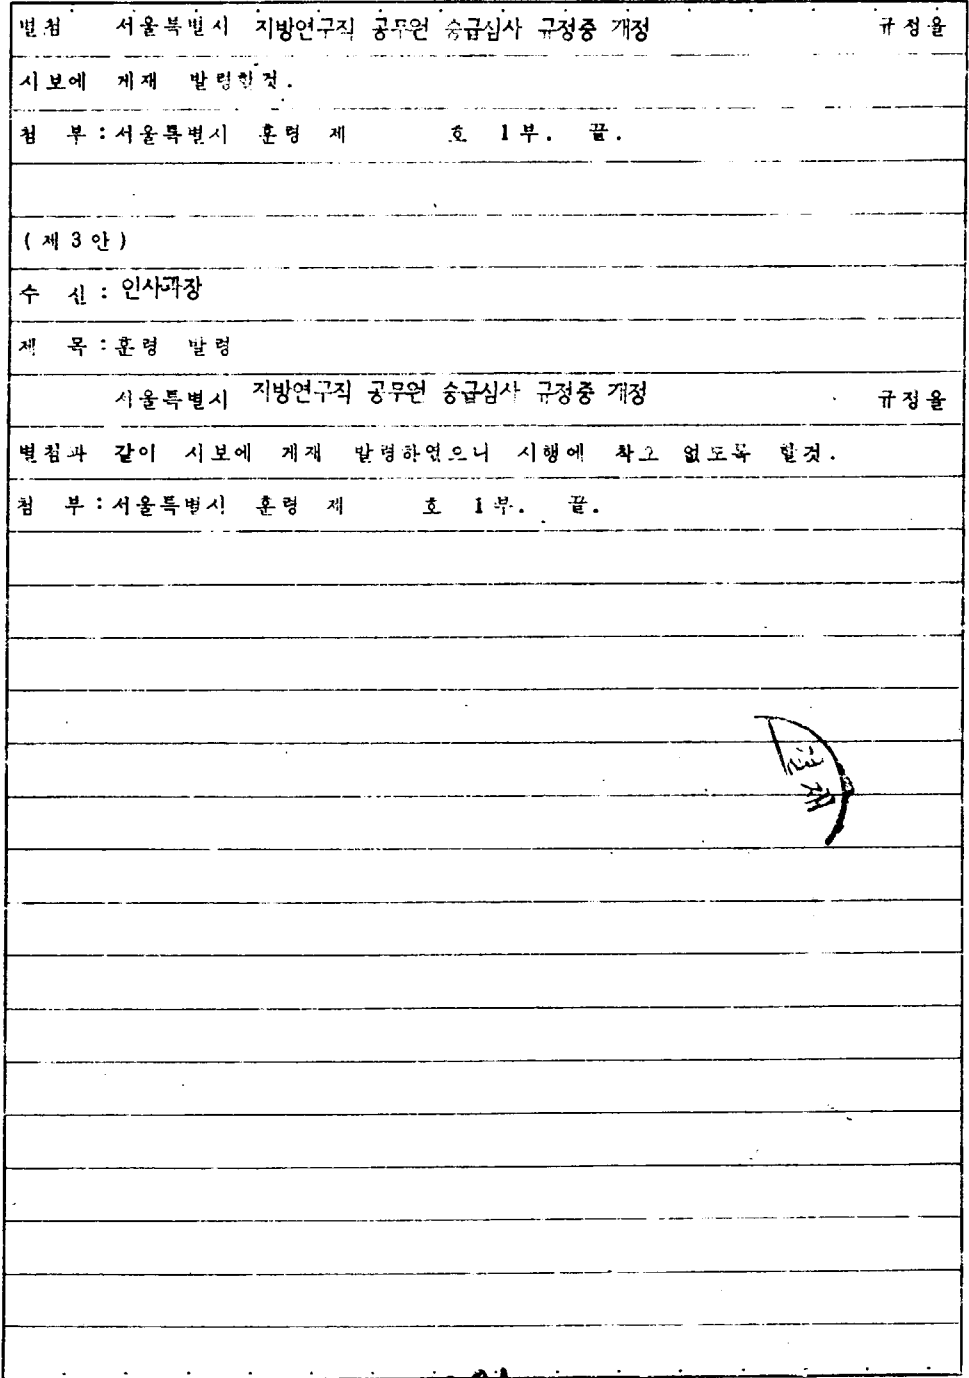 별첨 서울특별시 지방연구직 공무원 승급심사 규정중 개정 규정을
시보에 게재 발령할것.
첨 부 : 서울특별시 훈령 제 호 1부. 끝.
(제3안)
수 신 : 인사과장
제 목 : 훈령 발령
서울특별시 지방연구직 공무원 승급심사 규정중 개정 규정을
별첨과 같이 시보에 게재 발령하였으니 시행에 착오 없도록 할것.
첨 부 : 서울특별시 훈령 제 호 1부. 끝.